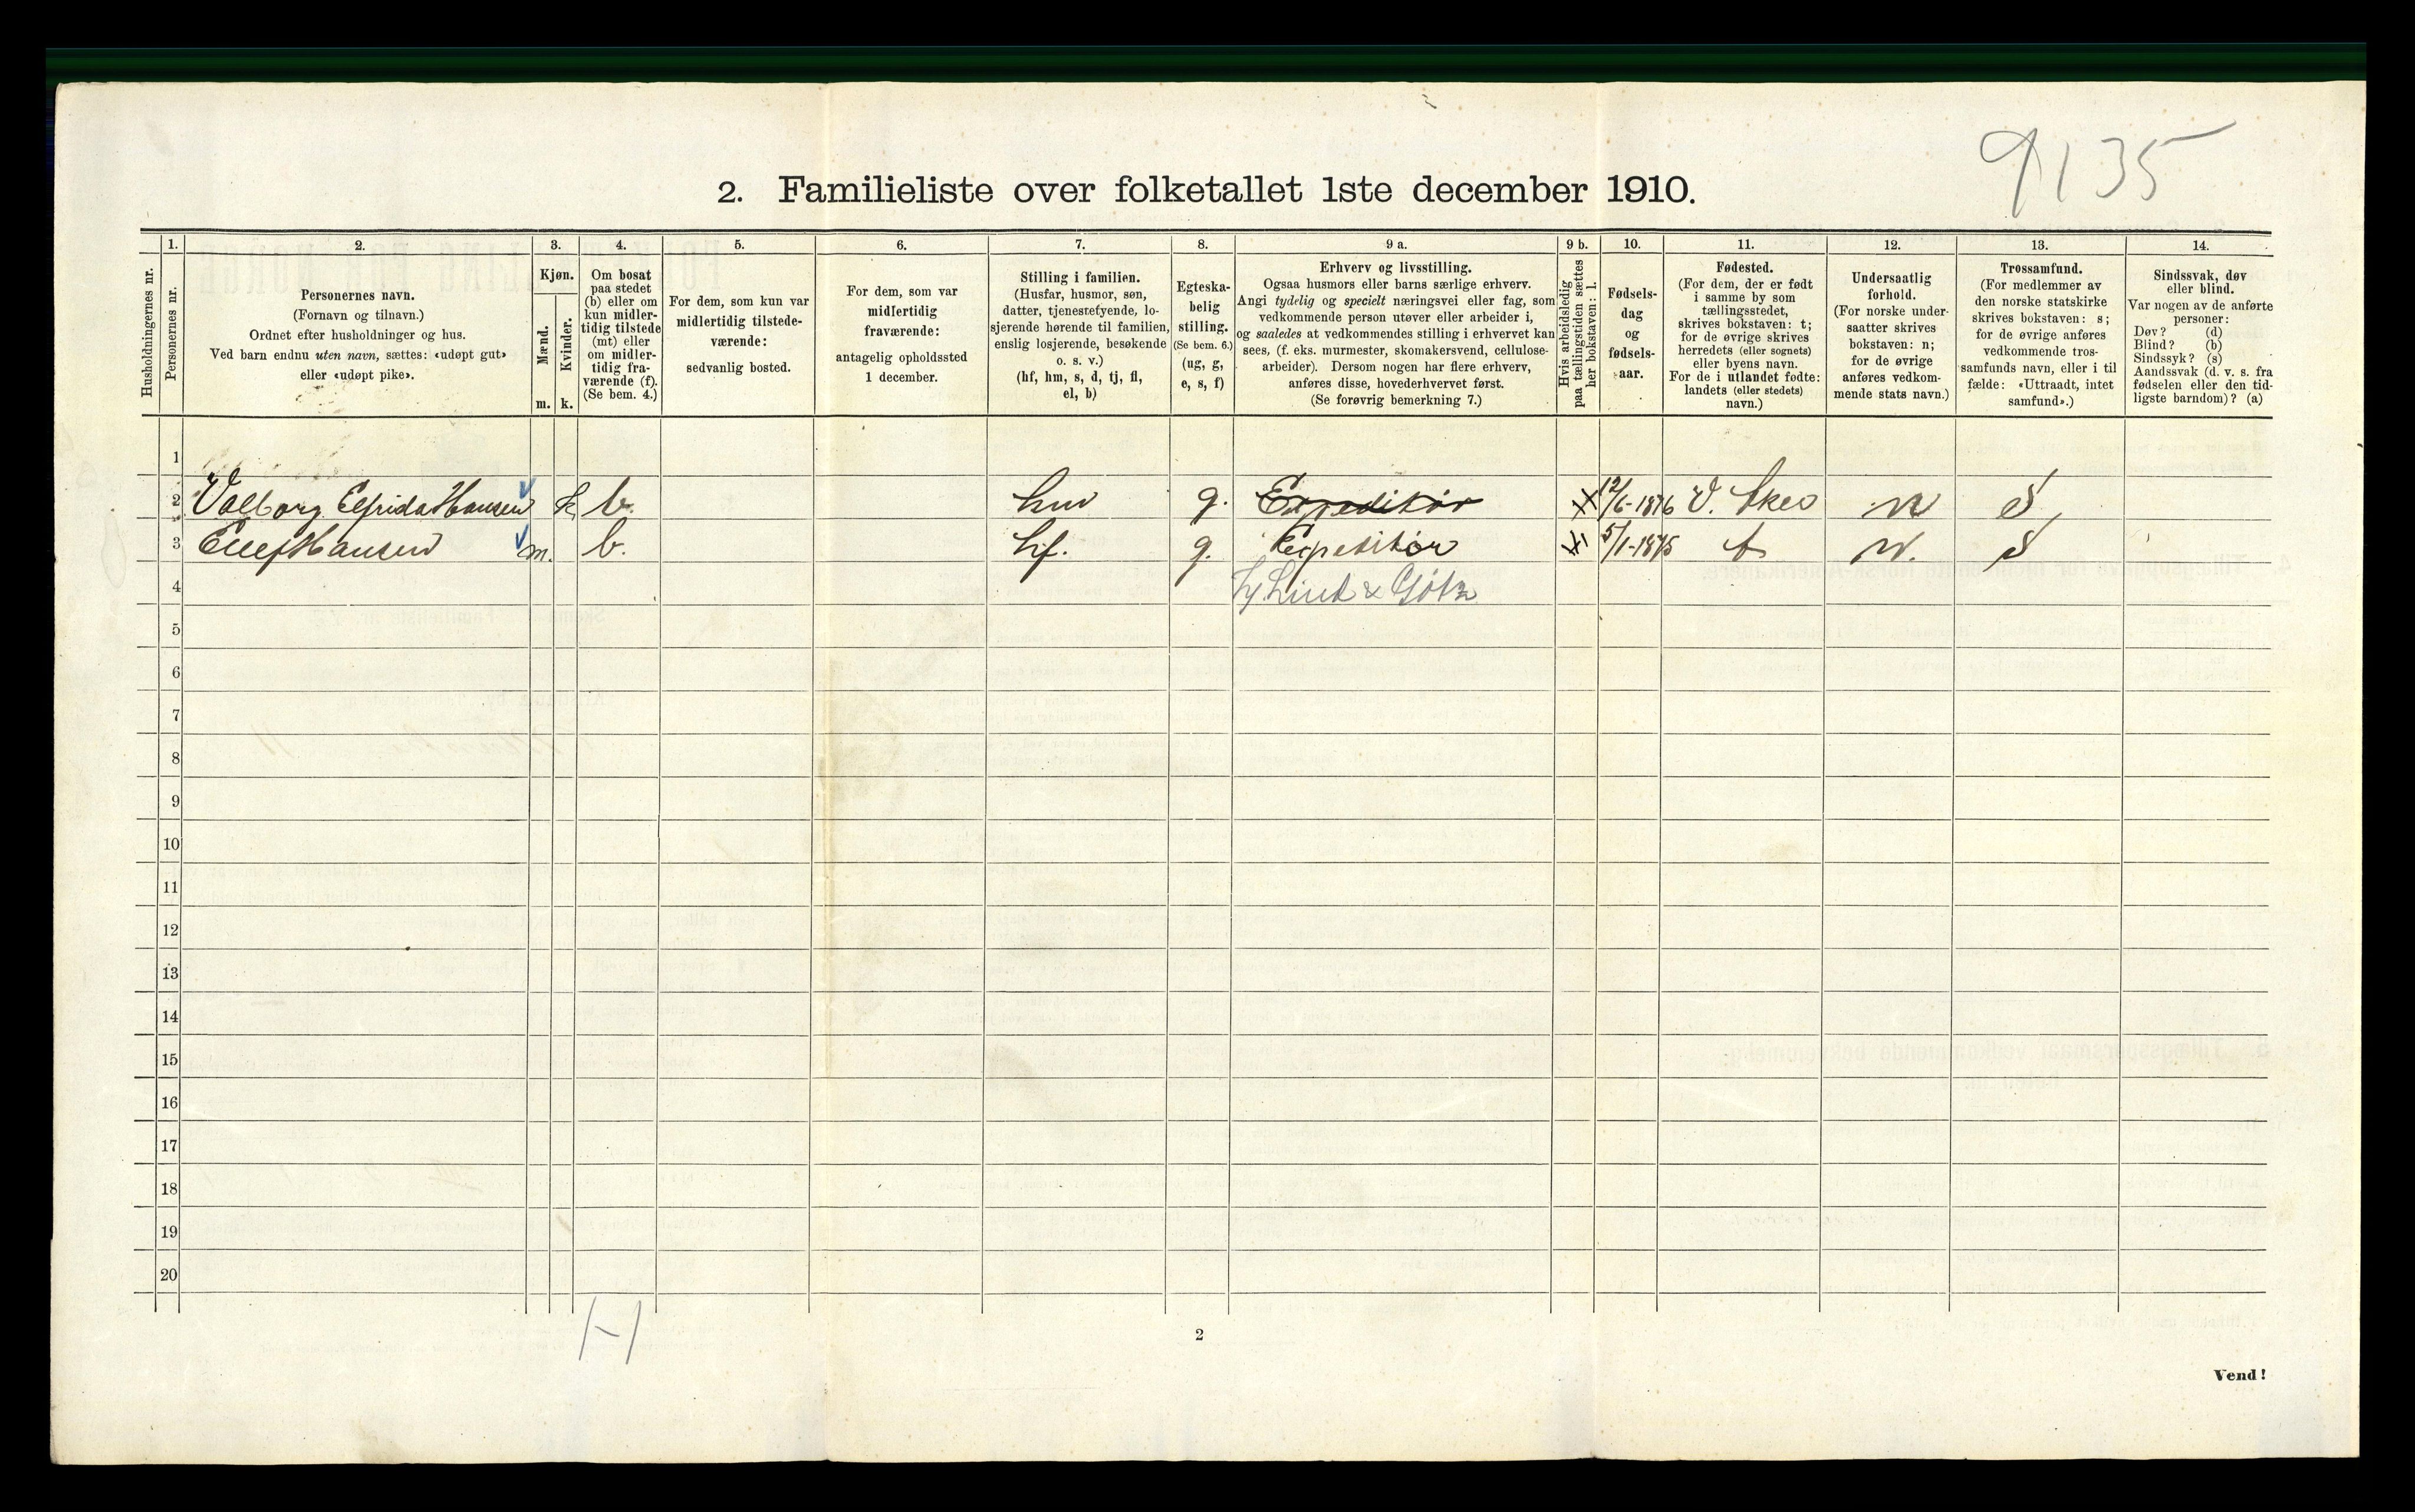 9135
2. Familieliste over folketallet 1ste december 1910.
1. 2. 3. 4. 5. 6. 7. 8. 9 a. 9 b. 10. 11. 12. 13. 14.
Husholdningernes nr.
Personernes nr.
Personernes navn.
(Fornavn og tilnavn.)
Ordnet efter husholdninger og hus.
Ved barn endnu uten navn, sættes: «udøpt gut»
eller «udøpt pike».
Kjøn.
Mænd.
Kvinder.
m. k.
Om bosat
paa stedet
(b) eller om
kun midler-
tidig tilstede
(mt) eller
om midler-
tidig fra-
værende (f).
(Se bem. 4.)
For dem, som kun var
midlertidig tilstede-
værende:
sedvanlig bosted.
For dem, som var
midlertidig
fraværende:
antagelig opholdssted
1 december.
Stilling i familien.
(Husfar, husmor, søn,
datter, tjenestefyende, lo-
sjerende hørende til familien,
enslig losjerende, besøkende
o. s. v.)
(hf, hm, s, d, tj, fl,
el, b)
Egteska-
belig
stilling.
(Se bem. 6.)
(ug, g,
e, s, f)
Erhverv og livsstilling.
Ogsaa husmors eller barns særlige erhverv.
Angi tydelig og specielt næringsvei eller fag, som
vedkommende person utøver eller arbeider i,
og saaledes at vedkommendes stilling i erhvervet kan
sees, (f. eks. murmester, skomakersvend, cellulose-
arbeider). Dersom nogen har flere erhverv,
anføres disse, hovederhvervet først.
(Se forøvrig bemerkning 7.)
Hvis arbeidsledig
paa tællingstiden sættes
her bokstaven: l.
Fødsels-
dag
og
fødsels-
aar.
Fødested.
(For dem, der er født
i samme by som
tællingsstedet,
skrives bokstaven: t;
for de øvrige skrives
herredets (eller sognets)
eller byens navn.
For de i utlandet fødte:
landets (eller stedets)
navn.)
Undersaatlig
forhold.
(For norske under-
saatter skrives
bokstaven: n;
for de øvrige
anføres vedkom-
mende stats navn.)
Trossamfund.
(For medlemmer av
den norske statskirke
skrives bokstaven: s;
for de øvrige anføres
vedkommende tros-
samfunds navn, eller i til
fælde: «Uttraadt, intet
samfund».)
Sindssvak, døv
eller blind.
Var nogen av de anførte
personer:
Døv? (d)
Blind? (b)
Sindssyk? (s)
Aandssvak (d. v. s. fra
fødselen eller den tid-
ligste barndom)? (a)
1
2 Valborg Elfrida Hansen k b. hm g. Expeditør 12/6-1876 V. Aker n s
3 Ellef Hansen m. b. hf. g. Expeditør 5/1-1875 t n. s
4
5
6
7
8
9
10
11
12
13
14
15
16
17
18
19
20
2
Vend!